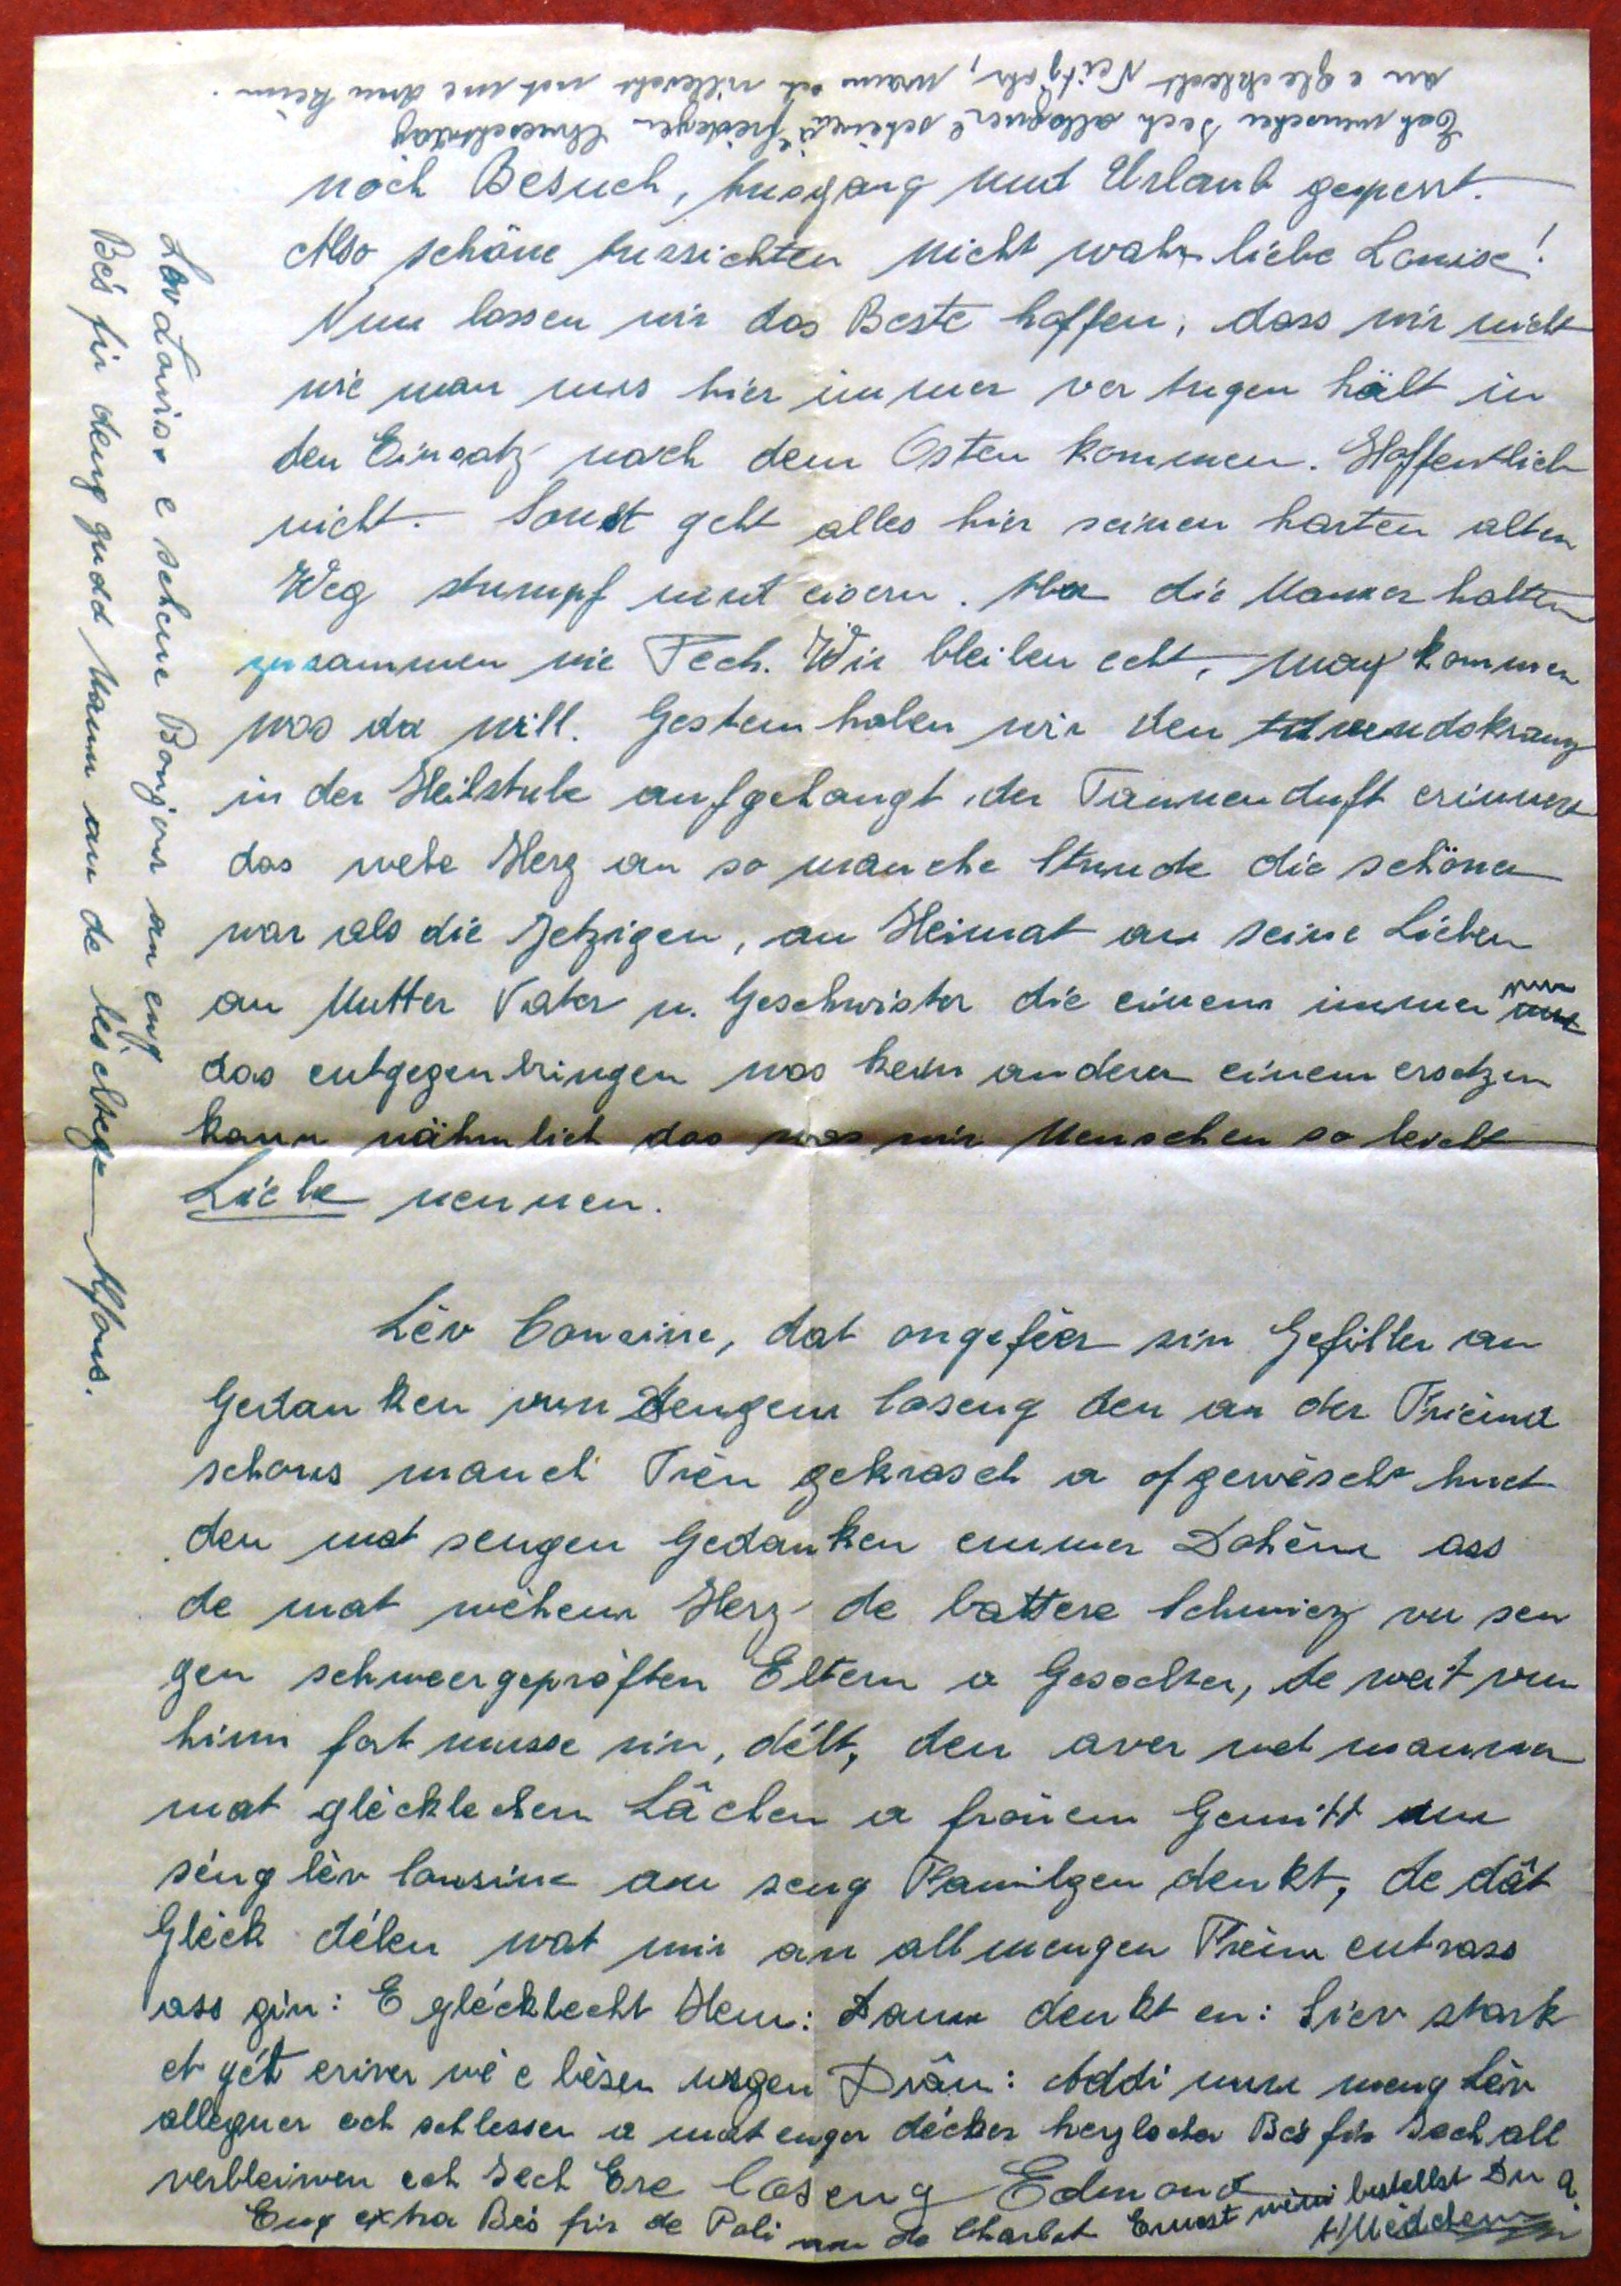 Ech wenschen Iech alleguer e schéinen friedegen Chreschtdag
an e glecklecht Neitjohr, wann ech villeicht net me dru keim.
noch Besuch, Ausgang und Urlaub gesperrt.
Also schöne Aussichten nicht wahr liebe Louise!
Nun lassen wir das Beste hoffen, dass wir nicht
wie man uns hier immer vor Augen hält in
den Einsatz nach dem Osten kommen. Hoffentlich
nicht. Sonst geht alles hier seinen harten alten
Weg stumpf und eisern. die Männer halten
zusammen wie Pech. Wir bleiben echt, mag kommen
was da will. Gestern haben wir den Adwendskranz
in der Stube aufgehangt, der Tannenduft erinnert
das wehe Herz an so manche Stunde die schöner
war als die Jetzigen, an Heimat an seine Lieben
an Mutter Vater u. Geschwister die einem immer nur
das entgegenbringen was kein anderer einem ersetzen
kann nähmlich das was wir Menschen so leicht
Liebe nennen.
Lèv Cousine, dat ongeféer sin Gefiller an
Gedanken vun Dengem Coseng den an der Friemd
schons manch Trèn gekrasch a ofgewëscht huet
den mat sengen Gedanken emmer Dohèm ass
de mat wèhem Herz de battere Schmierz vu sen
gen schweergepröften Eltern a Geschwister, de weit vun
him fort musse sin, délt, den awer net manner
mat glècklechem Lächen a frouem Gemitt un
séng lèv Cousine an seng Familgen denkt, de dât
Glèck délen wat mir an all mengen Frèim entrass
ass gin: E glécklecht Hem: Dann denkt en: Siev stark
et gét eriwer wé e bèsen Drâm: Addi nun meng Lèv
alleguer ech schlessen a mat enger décker herzlecher Bés fir Iech all
verbleiwen ech Iech Ere Coseng Edmond
Eng extra Bés fir de Poli an de Charlot Ernest wéini bestellst Du d'
Médchen
Lev Louis e schene Bonjour an eng
Bés fir deng gudd Mamm an de Alfons.